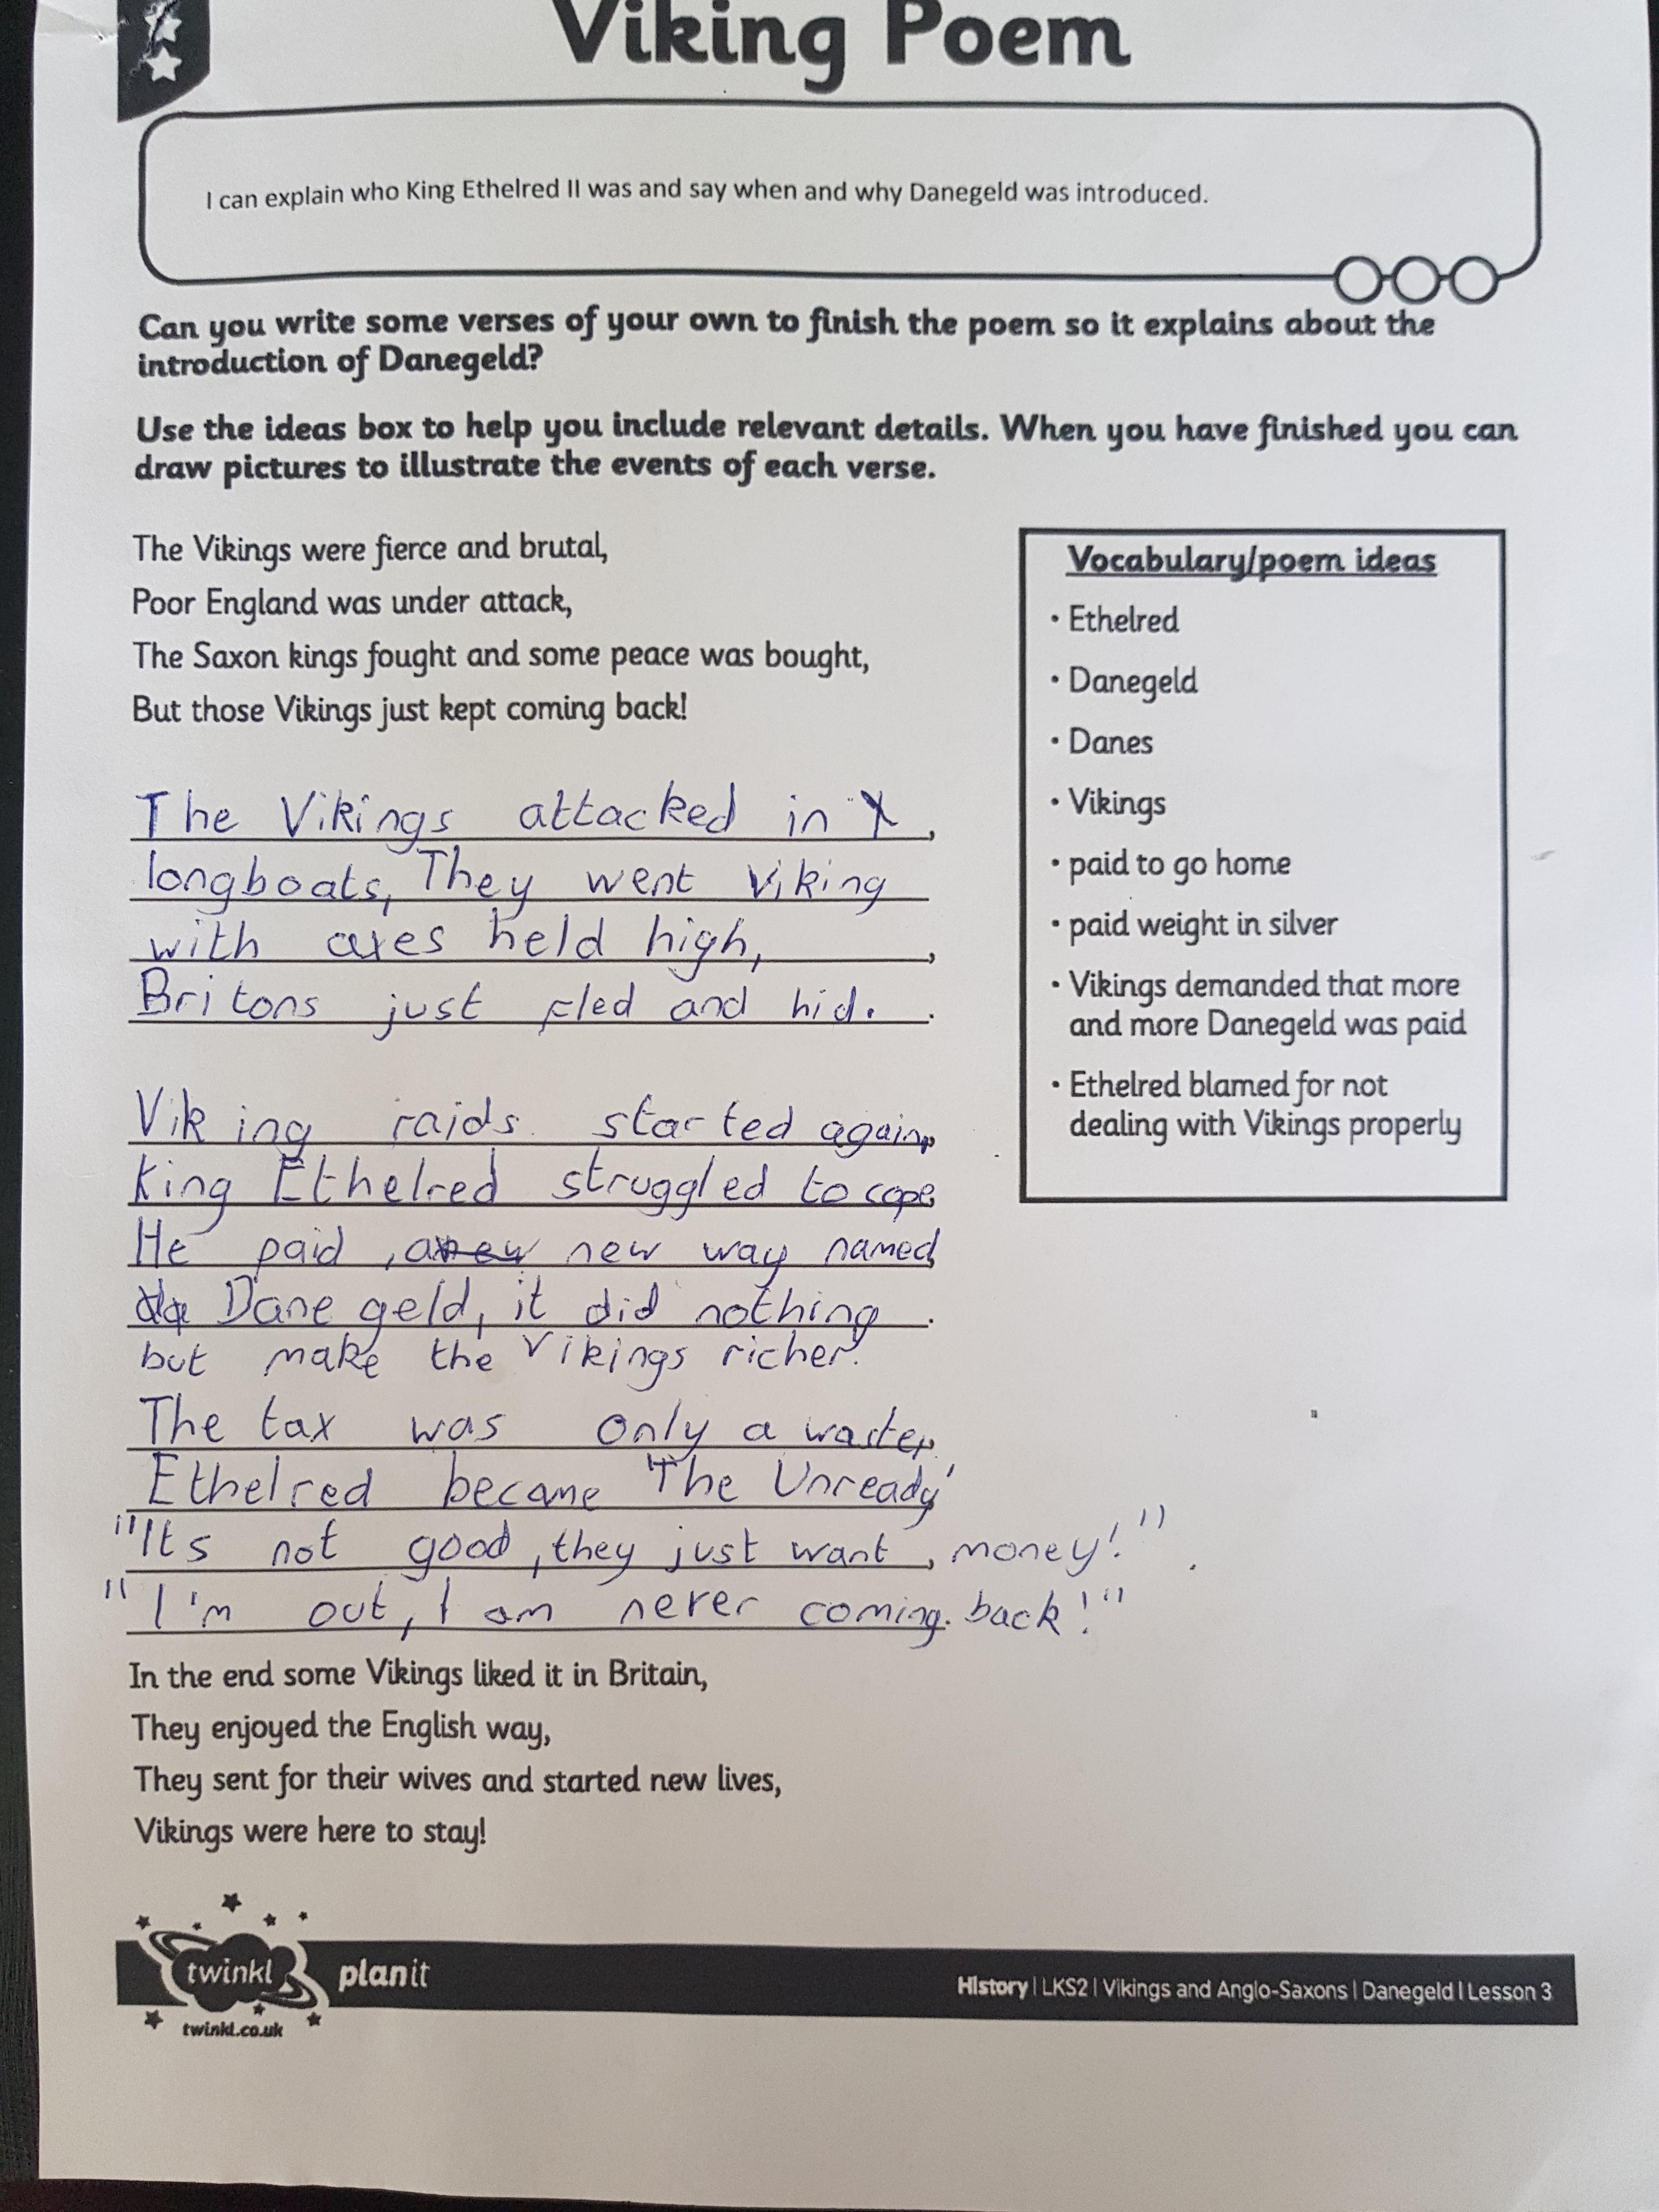 Viking Poem
I can explain who King Ethelred II was and say when and why Danegeld was introduced.
Can you write some verses of your own to finish the poem so it explains about the
introduction of Danegeld?
Use the ideas box to help you include relevant details. When you have finished you can
draw pictures to illustrate the events of each verse.
The Vikings were fierce and brutal,
Poor England was under attack,
The Saxon kings fought and some peace was bought,
But those Vikings just kept coming back!
The Vikings attacked in ,
longboats, They went viking
with axes held high, ,
Britons just fled and hid. .
Viking raids started again,
king Ethelred struggled to cope,
He paid , a new way named,
Danegeld, it did nothing .
but make the Vikings richer.
The tax was only a waste,
Ethelred became 'The Unready'
"Its not good, they just want, money!" .
"I'm out, I am never coming. back!"
In the end some Vikings liked it in Britain,
They enjoyed the English way,
They sent for their wives and started new lives,
Vikings were here to stay!
Vocabulary/poem ideas
• Ethelred
• Danegeld
• Danes
• Vikings
• paid to go home
• paid weight in silver
• Vikings demanded that more
and more Danegeld was paid
• Ethelred blamed for not
dealing with Vikings properly
twinkl planit
twinkl.co.uk
History | LKS2 | Vikings and Anglo-Saxons | Danegeld | Lesson 3